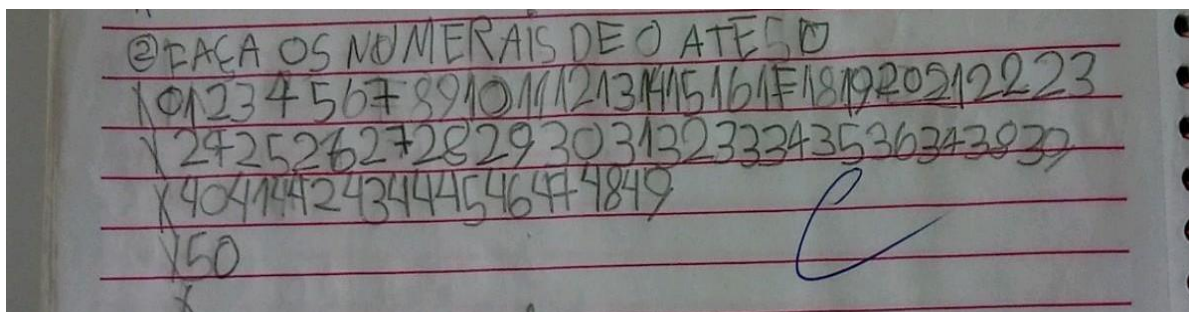 ② FAÇA OS NUMERAIS DE 0 ATE 50
X 0 1 2 3 4 5 6 7 8 9 10 11 12 13 14 15 16 17 18 19 20 21 22 23
X 24 25 26 27 28 29 30 31 32 33 34 35 36 37 38 39
X 40 41 42 43 44 45 46 47 48 49
X 50
X
C